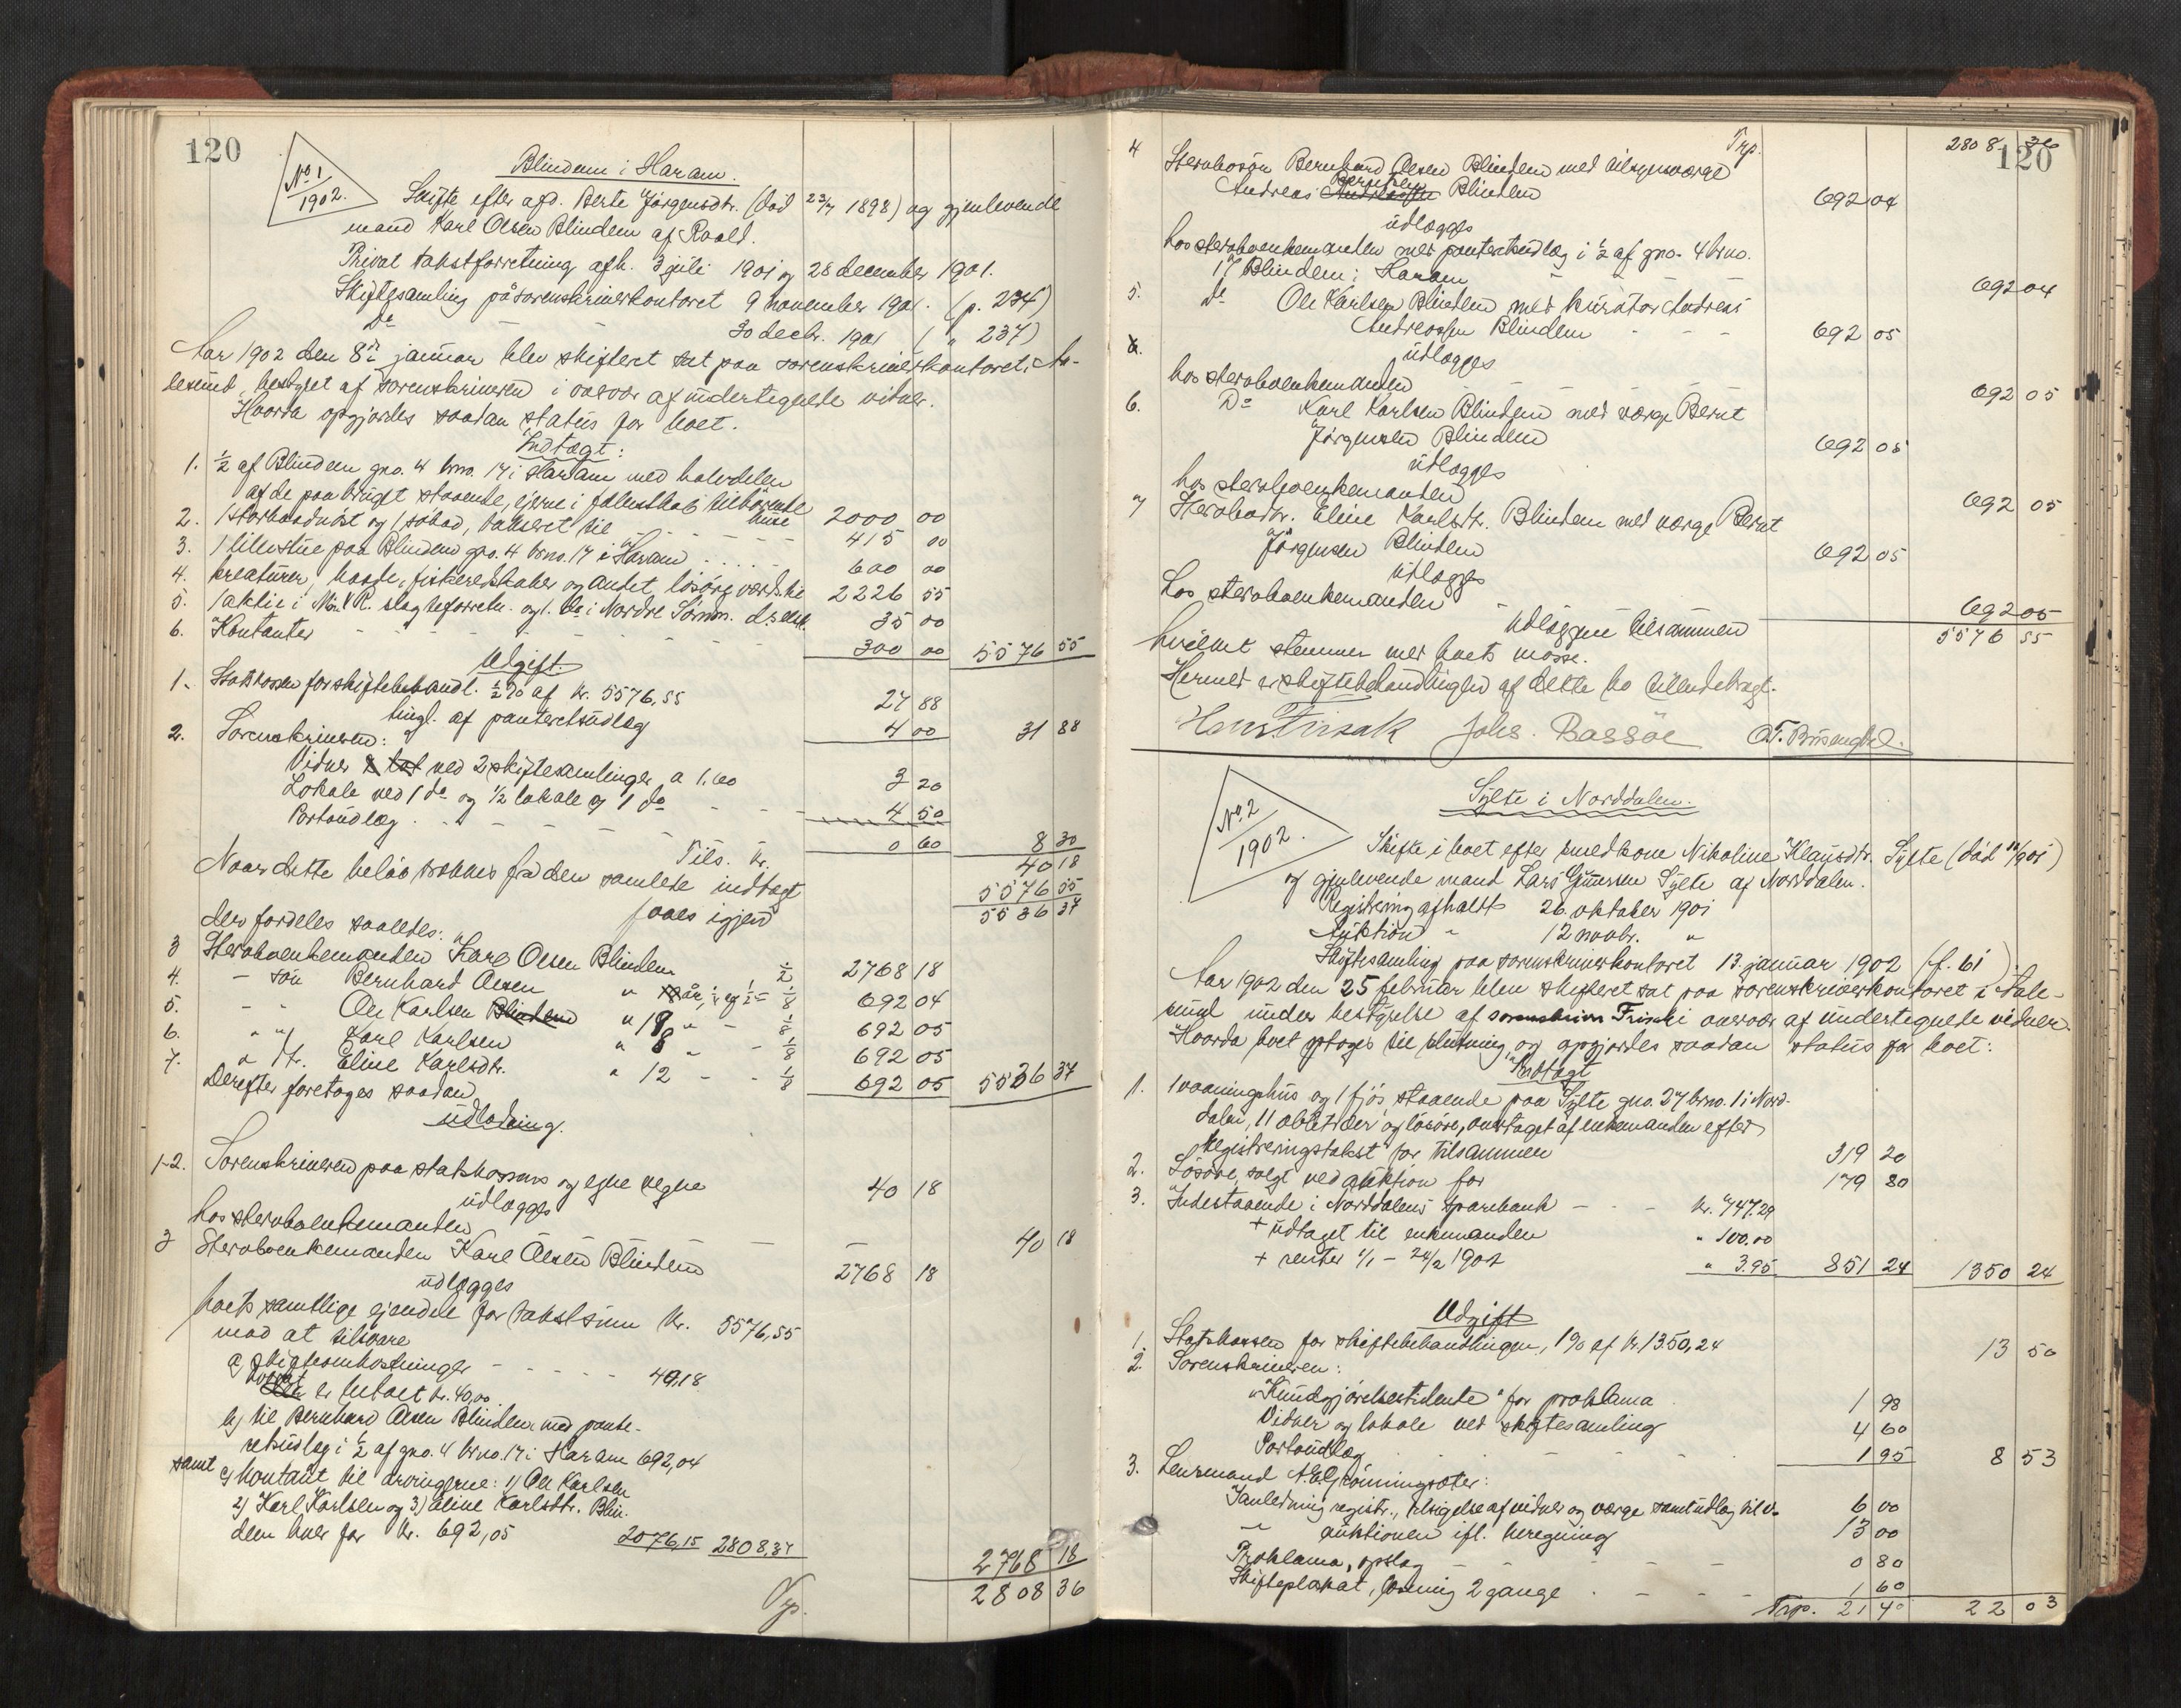 120
No 1
1902.
Blindem i Haram.
Skifte efter afd. Berte Jörgensdtr. (död 23/4 1898) og gjenlevende
mand Karl Olsen Blindem af Roald.
Privat takstforretning afh. 3 juli 1901 og 28 december 1901.
Skiftesamling på sorenskriverkontoret 9 november 1901. (p. 234)
Do 30 decbr. 1901 ( " 237)
Aar 1902 den 8de januar blev skifteret sat paa sorenskriverkontoret i Aa-
lesund, bestyret af sorenskriveren i overvær af undertegnede vidner.
Hvorda opgjordes saadan status for boet.
Indtægt:
1. ½ af Blindem gno. 4 brno. 17 i Haram med halvdelen
af de paa bruget staaende, eierne i fællesskab tilhörende
huse 2000 00
2. 1 storbaadnöst og 1 söbod, taxeret til - - - - 415 00
3. 1 lillestue paa Blindem gno. 4 brno. 17 i Haram . . . . . 600 00
4. Kreaturer, baade, fiskeredskaber og andet lösöre værds. til 2226 55
5. 1 aktie i M. & R. slagteforretn. og 1 do i Nordre Sönm. d.s.selsk. 35 00
6. Kontanter - - - - - - 300 00 5576 55
Udgift.
1. Statskassen for skiftebehandl. ½% af kr. 5576,55 27 88
tingl. af panteretsudlæg 4 00 31 88
2. Sorenskriveren:
Vidner ved 2 skiftesamlinger a 1.60 3 20
Lokale ved 1 do og ½ lokale ved 1 do - - - 4 50
Portoudlæg . - - - - - 0 60 8 30
Tils. kr. 40 18
Naar dette belöb trækkes fra den samlede indtægt 5576 55
faaes igjen 5536 37
der fordeles saaledes:
3 Stervboenkemanden Karl Olsen Blindem ½ 2768 18
4. - sön Bernhard Olsen 1/8 692 04
5. - " Ole Karlsen Blindem " 19 " - 1/8 692 05
6. " " Karl Karlsen " 8 " - 1/8 692 05
7. " dtr. Eline Karlsdtr. " 12 - - 1/8 692 05 5536 37
Derefter foretages saadan
udlodning.
1-2. Sorenskriveren paa statskassens og egne vegne 40 18
udlægges
hos stervboenkemanden - - - - 40 18
3 Stervboenkemanden Karl Olsen Blindem 2768 18
udlægges
boets samtlige eiendele for takstsum kr. 5576,55
mod at tilsvare
a, skifteomkostninger - - - - 40,18
hvoraf er betalt kr. 40,00
b, til Bernhard Olsen Blindem med pante-
retsudlæg i ½ af gno. 4 brno. 17 i Haram 692,04
samt c, kontant til arvingerne: 1) Ole Karlsen
2) Karl Karlsen og 3) Eline Karlsdtr. Blin-
dem hver for kr. 692,05 2076,15 2808,37
2768 18
Trp. 2808 36
120
Trp. 2808 36
4 Stervbosön Bernhard Olsen Blindem med tilsynsværge
Andreas Berntsen Blindem 692 04
udlægges
hos stervboenkemanden med panteretsudlæg i ½ af gno. 4 brno.
17 Blindem i Haram - - - 692 04
5. do Ole Karlsen Blindem med kurator Andreas
Andreassen Blindem - - - 692 05
udlægges
hos stervboenkemanden 692 05
6. Do Karl Karlsen Blindem med værge Bernt
Jörgensen Blindem 692 05
udlægges
hos stervboenkemanden 692 05
7 Stervbodtr. Eline Karlsdtr. Blindem med værge Bernt
Jörgensen Blindem 692 05
udlægges
hos stervboenkemanden 692 05
Udlæggene tilsammen 5576 55
hvilket stemmer med boets masse.
Hermed er skiftebehandlingen af dette bo tilendebragt.
Johs. Bassöe
No 2
1902.
Sylte i Norddalen.
Skifte i boet efter Nikoline Klausdtr. Sylte (död
og gjenlevende mand Lars Gunnersen Sylte af Norddalen.
Registrering afholdt 26. oktober 1901
Auktion " 12 novbr. "
Skiftesamling paa sorenskriverkontoret 13. januar 1902 (f. 61)
Aar 1902 den 25 februar blev skifteret sat paa sorenskriverkontoret i Aale-
sund under bestyrelse af i overvær af undertegnede vidner.
Hvorda boet optoges til slutning og opgjordes saadan status for boet:
Indtægt
1. 1 vaaningshus og 1 fjös, staaende paa Sylte gno. 27 brno. 1 i Nord-
dalen, 11 æbletræer og lösöre, overtaget af enkemanden efter
registreringstakst for tilsammen 319 20
2. Lösöre, solgt ved auktion for 179 80
3. Indestaaende i Norddalens sparebank - - - kr. 747.29
+ udtaget til enkemanden " 100.00
+ renter 1/1 - 24/2 1902 " 3.95 851 24 1350 24
Udgift
1. Statskassen for skiftebehandlingen, 1% af kr. 1350,24 13 50
2. Sorenskriveren:
"Kundgjörelsestidende" for proklama 1 98
Vidner og lokale ved skiftesamling 4 60
Portoudlæg 1 95 8 53
3. Lensmand A. E. Grönningsæter:
I anledning registr., tilsigelse af vidner og værge samt udlæg til v. 6 00
" auktionen ifl. beregning 13 00
Proklama, opslag - - - - 0 80
Skifteplakat, læsning 2 gange . - - - 1 60
Trp. 21 40 22 03